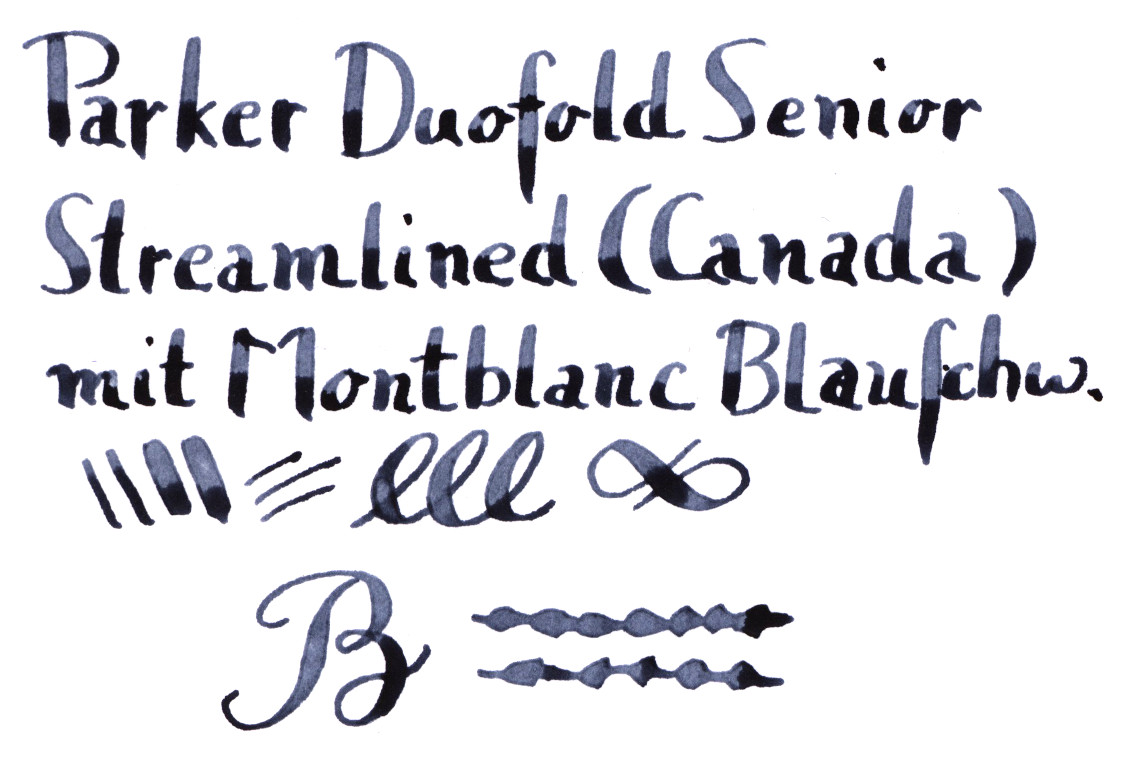 Parker Duofold Senior
Streamlined (Canada)
mit Montblanc Blauſchw.
lll
B